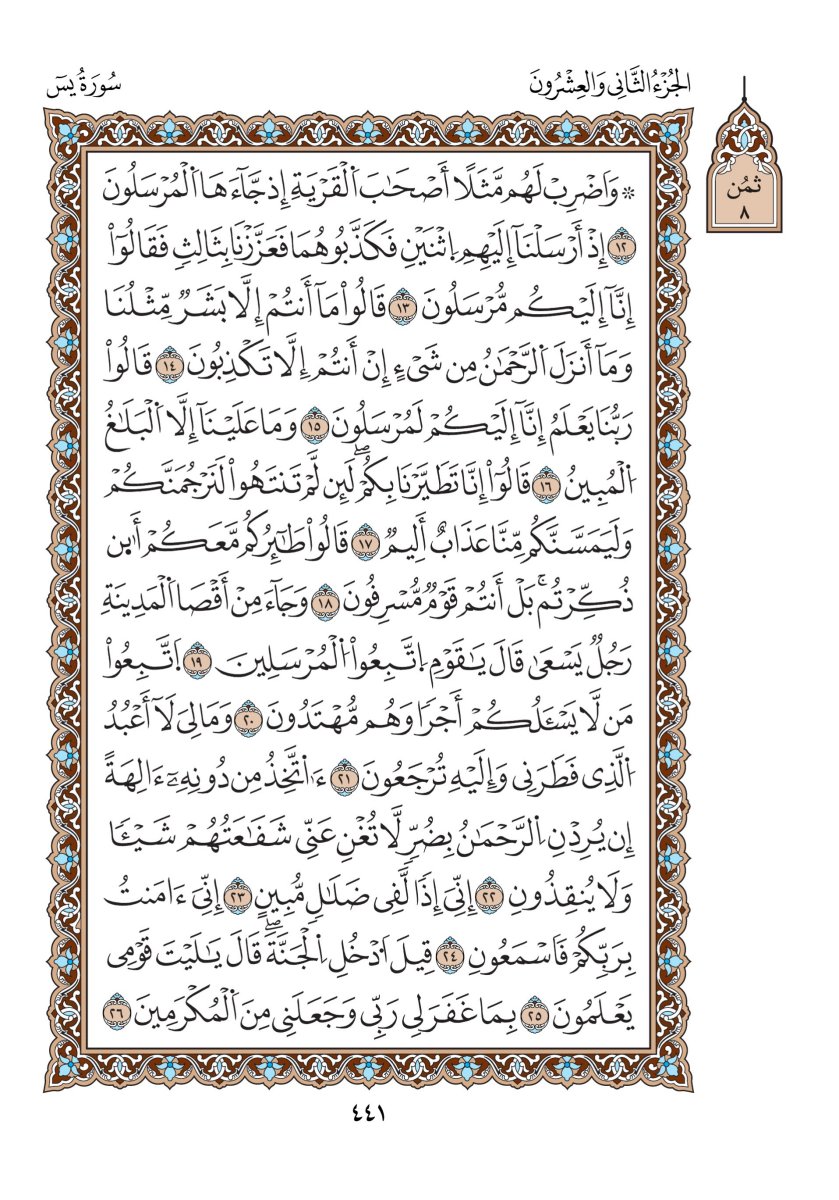 الجُزْءُ الثَّانِي وَالعِشْرُونَ
سُورَةُ يسٓ
ثمُن
٨
۞ وَاضْرِبْ لَهُم مَّثَلًا أَصْحَٰبَ اَ۬لْقَرْيَةِ إِذْ جَآءَهَا اَ۬لْمُرْسَلُونَ
١٢ إِذْ أَرْسَلْنَآ إِلَيْهِمِ اِ۪ثْنَيْنِ فَكَذَّبُوهُمَا فَعَزَّزْنَا بِثَالِثٖ فَقَالُوٓاْ
إِنَّآ إِلَيْكُم مُّرْسَلُونَ ١٣ قَالُواْ مَآ أَنتُمْ إِلَّا بَشَرٞ مِّثْلُنَا
وَمَآ أَنزَلَ اَ۬لرَّحْمَٰنُ مِن شَيْءٍ إِنْ أَنتُمْ إِلَّا تَكْذِبُونَ ١٤ قَالُواْ
رَبُّنَا يَعْلَمُ إِنَّآ إِلَيْكُمْ لَمُرْسَلُونَ ١٥ وَمَا عَلَيْنَآ إِلَّا اَ۬لْبَلَٰغُ
اُ۬لْمُبِينُ ١٦ قَالُوٓاْ إِنَّا تَطَيَّرْنَا بِكُمْۖ لَئِن لَّمْ تَنتَهُواْ لَنَرْجُمَنَّكُمْ
وَلَيَمَسَّنَّكُم مِّنَّا عَذَابٌ أَلِيمٞ ١٧ قَالُواْ طَٰٓئِرُكُم مَّعَكُمْ أَاْ۬ين
ذُكِّرْتُمۚ بَلْ أَنتُمْ قَوْمٞ مُّسْرِفُونَ ١٨ وَجَآءَ مِنْ أَقْصَا اَ۬لْمَدِينَةِ
رَجُلٞ يَسْعَىٰ قَالَ يَٰقَوْمِ اِ۪تَّبِعُواْ اُ۬لْمُرْسَلِينَ ١٩ اَ۪تَّبِعُواْ
مَن لَّا يَسْـَٔلُكُمْ أَجْرٗا وَهُم مُّهْتَدُونَ ٢٠ وَمَالِيَ لَآ أَعْبُدُ
اُ۬لَّذِي فَطَرَنِي وَإِلَيْهِ تُرْجَعُونَ ٢١ ءَا۬تَّخِذُ مِن دُونِهِۦٓ ءَالِهَةً
إِن يُرِدْنِ اِ۬لرَّحْمَٰنُ بِضُرّٖ لَّا تُغْنِ عَنِّي شَفَٰعَتُهُمْ شَيْـٔٗا
وَلَا يُنقِذُونِ ٢٢ إِنِّيَ إِذٗا لَّفِي ضَلَٰلٖ مُّبِينٍ ٢٣ إِنِّيَ ءَامَنتُ
بِرَبِّكُمْ فَاسْمَعُونِ ٢٤ قِيلَ اَ۟دْخُلِ اِ۬لْجَنَّةَۖ قَالَ يَٰلَيْتَ قَوْمِي
يَعْلَمُونَ ٢٥ بِمَا غَفَرَ لِي رَبِّي وَجَعَلَنِي مِنَ اَ۬لْمُكْرَمِينَ ٢٦
٤٤١